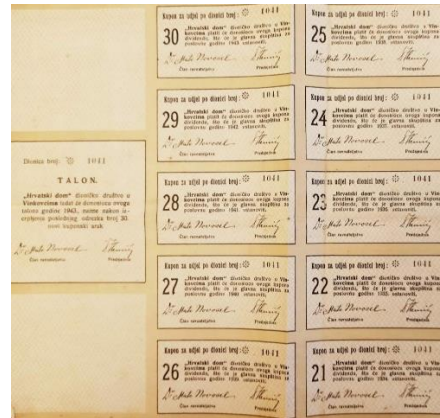 Dionica broj: 1041
TALON.
„Hrvatski dom" dioničko društvo u
Vinkovcima izdat će donosiocu ovoga
talona godine 1943, naime nakon is-
crpljenja posljednjeg odsječka broj 30.
novi kuponski arak
Dr Mato Novosel
Član ravnateljstva Predsjednik
Kupon za udjel po dionici broj: 1041
30
„Hrvatski dom" dioničko društvo u Vin-
kovcima platit će donosiocu ovoga kupona
dividendu, što će je glavna skupština za
poslovnu godinu 1943. ustanoviti.
Dr Mato Novosel
Član ravnateljstva Predsjednik
Kupon za udjel po dionici broj: 1041
29
„Hrvatski dom" dioničko društvo u Vin-
kovcima platit će donosiocu ovoga kupona
dividendu, što će je glavna skupština za
poslovnu godinu 1942. ustanoviti.
Dr Mato Novosel
Član ravnateljstva Predsjednik
Kupon za udjel po dionici broj: 1041
28
„Hrvatski dom" dioničko društvo u Vin-
kovcima platit će donosiocu ovoga kupona
dividendu, što će je glavna skupština za
poslovnu godinu 1941. ustanoviti.
Dr Mato Novosel
Član ravnateljstva Predsjednik
Kupon za udjel po dionici broj: 1041
27
„Hrvatski dom" dioničko društvo u Vin-
kovcima platit će donosiocu ovoga kupona
dividendu, što će je glavna skupština za
poslovnu godinu 1940. ustanoviti.
Dr Mato Novosel
Član ravnateljstva Predsjednik
Kupon za udjel po dionici broj: 1041
26
„Hrvatski dom" dioničko društvo u Vin-
kovcima platit će donosiocu ovoga kupona
dividendu, što će je glavna skupština za
poslovnu godinu 1939. ustanoviti.
Dr Mato Novosel
Član ravnateljstva Predsjednik
Kupon za udjel po dionici broj: 1041
25
„Hrvatski dom" dioničko društvo u Vin-
kovcima platit će donosiocu ovoga kupona
dividendu, što će je glavna skupština za
poslovnu godinu ustanoviti.
Dr Mato Novosel
Član ravnateljstva Predsjednik
Kupon za udjel po dionici broj: 1041
24
„Hrvatski dom" dioničko društvo u Vin-
kovcima platit će donosiocu ovoga kupona
dividendu, što će je glavna skupština za
poslovnu godinu ustanoviti.
Dr Mato Novosel
Član ravnateljstva Predsjednik
Kupon za udjel po dionici broj: 1041
23
„Hrvatski dom" dioničko društvo u Vin-
kovcima platit će donosiocu ovoga kupona
dividendu, što će je glavna skupština za
poslovnu godinu ustanoviti.
Dr Mato Novosel
Član ravnateljstva Predsjednik
Kupon za udjel po dionici broj: 1041
22
„Hrvatski dom" dioničko društvo u Vin-
kovcima platit će donosiocu ovoga kupona
dividendu, što će je glavna skupština za
poslovnu godinu ustanoviti.
Dr Mato Novosel
Član ravnateljstva Predsjednik
Kupon za udjel po dionici broj: 1041
21
„Hrvatski dom" dioničko društvo u Vin-
kovcima platit će donosiocu ovoga kupona
dividendu, što će je glavna skupština za
poslovnu godinu ustanoviti.
Dr Mato Novosel
Član ravnateljstva Predsjednik